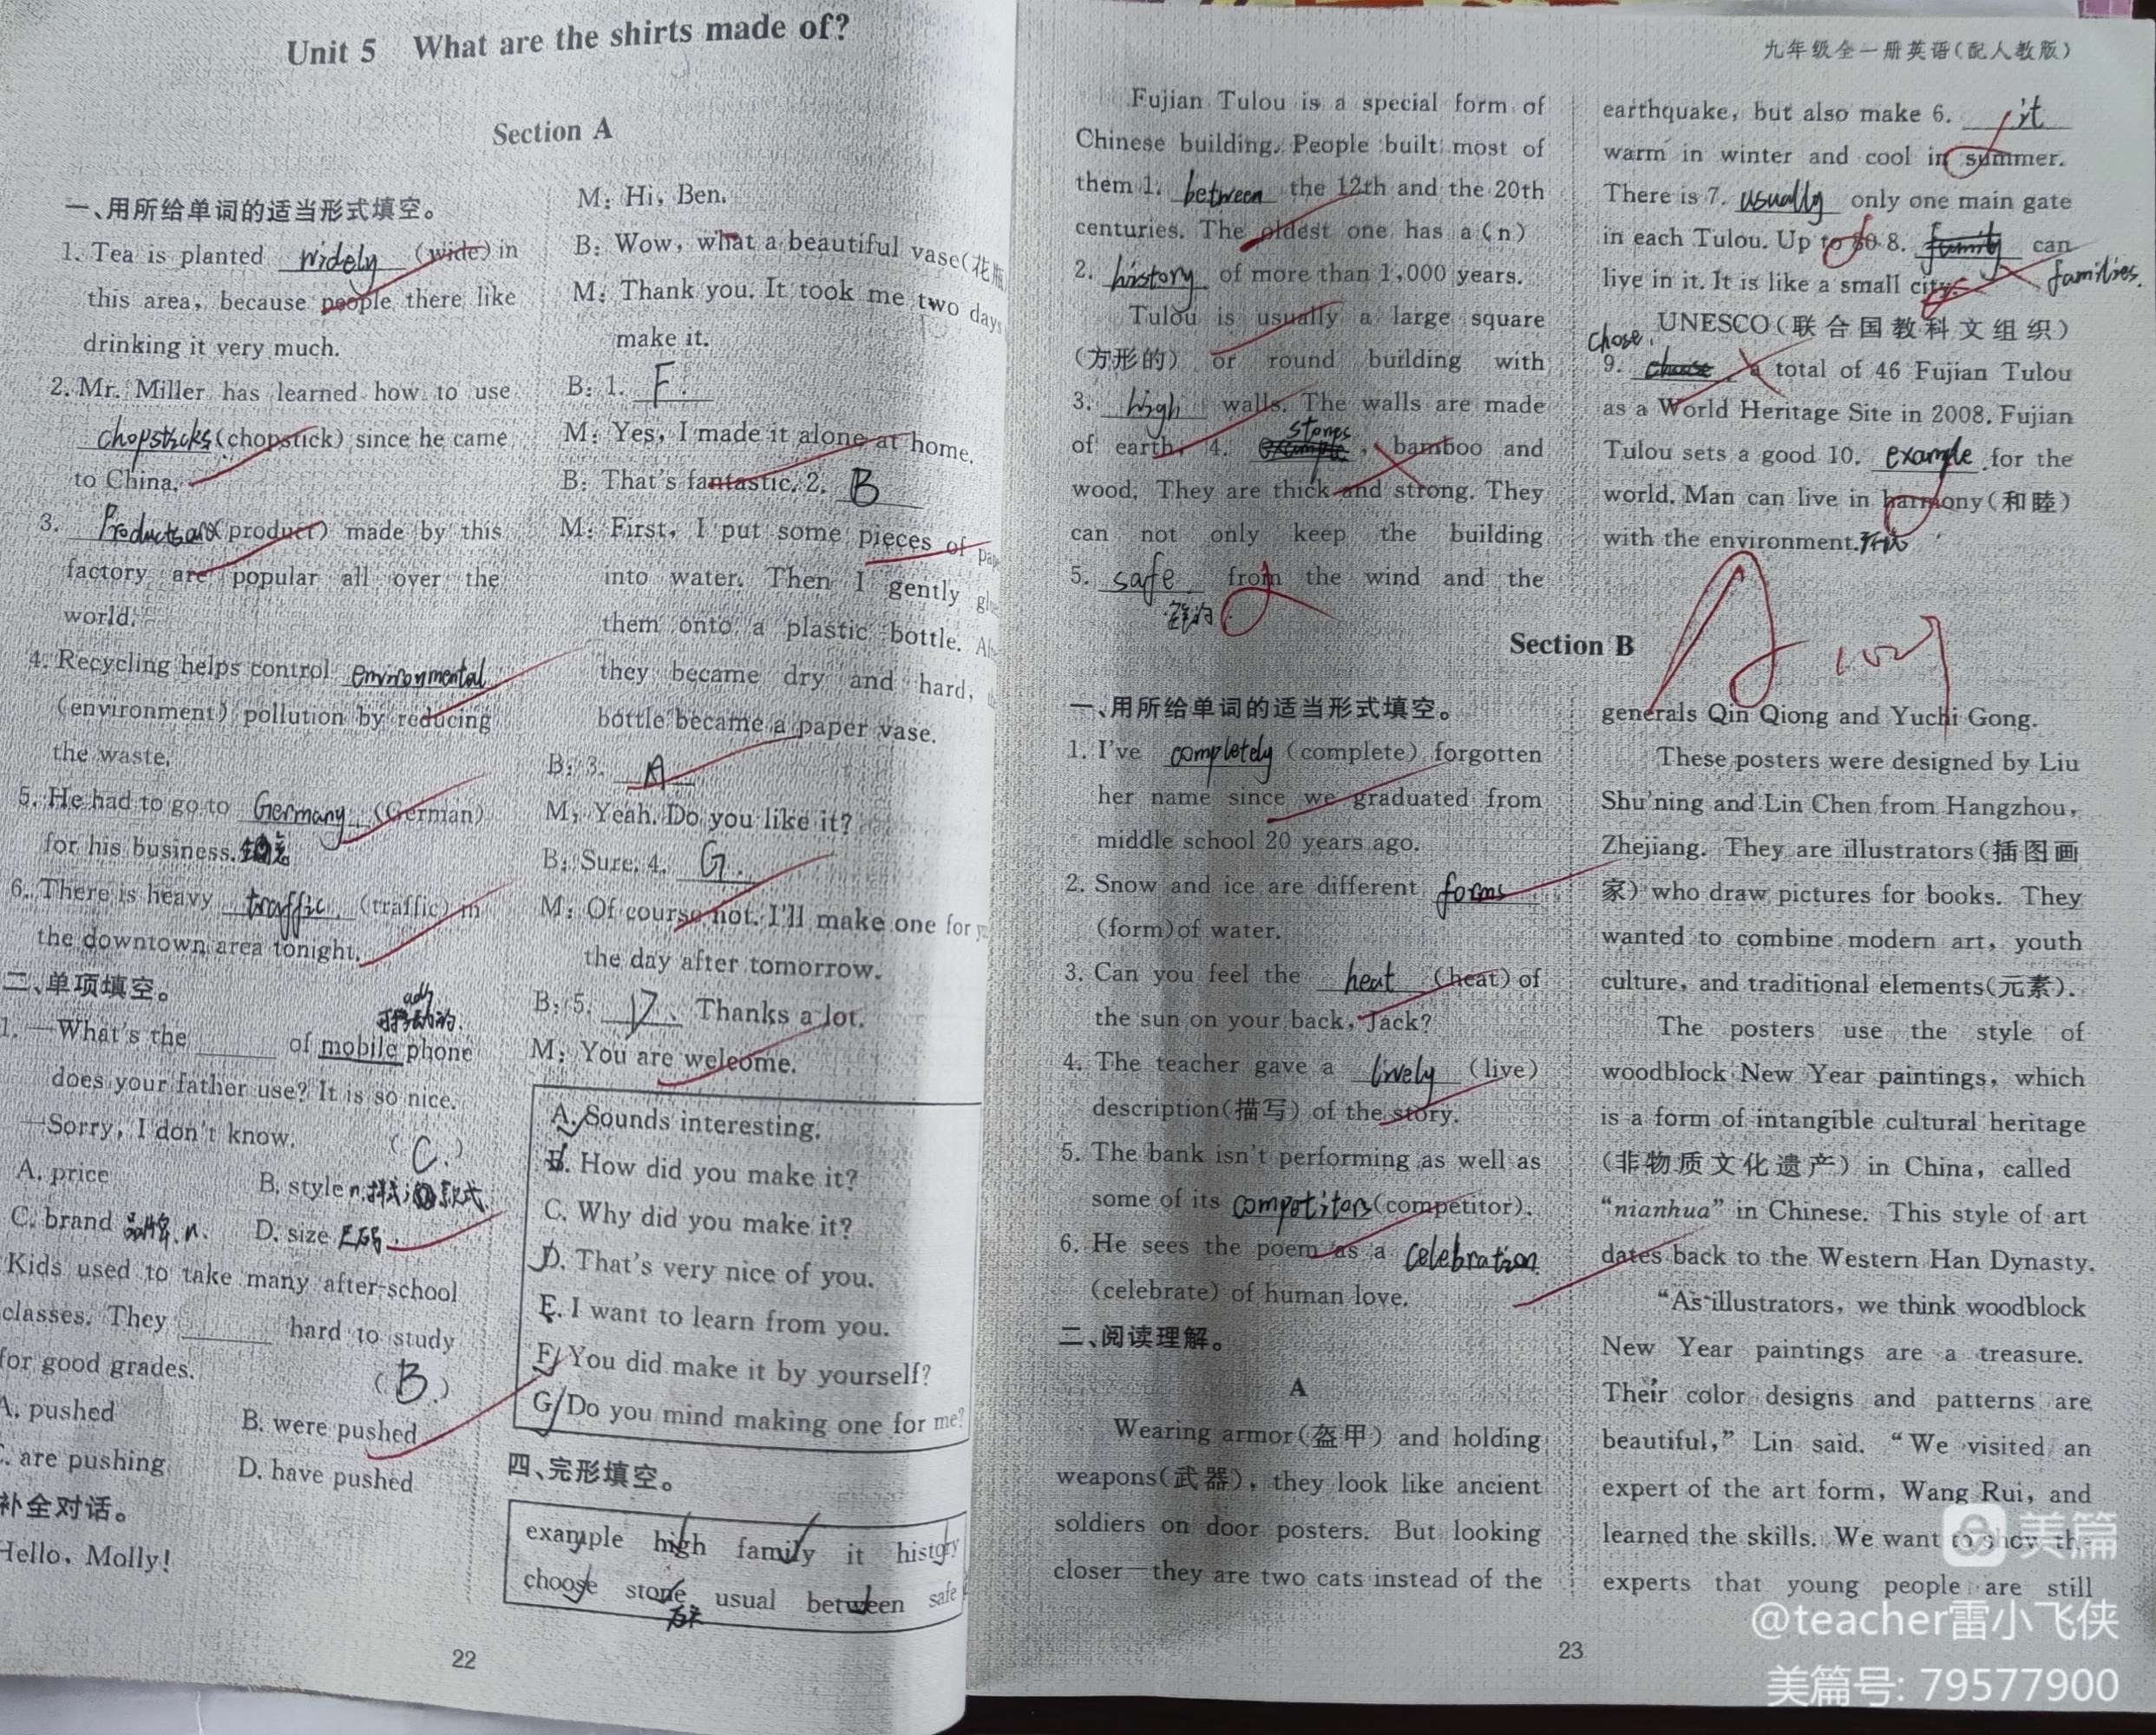 Unit 5 What are the shirts made of?
Section A
一、用所给单词的适当形式填空。
1. Tea is planted widely (wide) in
this area, because people there like
drinking it very much.
2. Mr. Miller has learned how to use
chopsticks (chopstick) since he came
to China.
3. Products (product) made by this
factory are popular all over the
world.
4. Recycling helps control environmental
(environment) pollution by reducing
the waste.
5. He had to go to Germany (German)
for his business.
6. There is heavy traffic (traffic) in
the downtown area tonight.
二、单项填空。
adj
1. —What's the ______ of mobile phone
does your father use? It is so nice.
—Sorry, I don't know. (C.)
A. price B. style n.
C. brand 品牌 n. D. size
Kids used to take many after-school
classes. They ______ hard to study
for good grades. (B.)
A. pushed B. were pushed
C. are pushing D. have pushed
补全对话。
Hello, Molly!
M: Hi, Ben.
B: Wow, what a beautiful vase(花瓶
M: Thank you. It took me two days
make it.
B: 1. F
M: Yes, I made it alone at home.
B: That's fantastic. 2. B
M: First, I put some pieces of
into water. Then I gently
them onto a plastic bottle.
they became dry and hard,
bottle became a paper vase.
B: 3. A
M: Yeah. Do you like it?
B: Sure. 4. G.
M: Of course not. I'll make one for
the day after tomorrow.
B: 5. D. Thanks a lot.
M: You are welcome.
A. Sounds interesting.
B. How did you make it?
C. Why did you make it?
D. That's very nice of you.
E. I want to learn from you.
F. You did make it by yourself?
G. Do you mind making one for me?
四、完形填空。
example high family it history
choose stone usual between safe
22
九年级全一册英语(配人教版)
Fujian Tulou is a special form of
Chinese building. People built most of
them 1. between the 12th and the 20th
centuries. The oldest one has a(n)
2. history of more than 1,000 years.
Tulou is usually a large square
(方形的) or round building with
3. high walls. The walls are made
of earth, 4. stones, bamboo and
wood. They are thick and strong. They
can not only keep the building
5. safe from the wind and the
earthquake, but also make 6. it
warm in winter and cool in summer.
There is 7. usually only one main gate
in each Tulou. Up to 80 8. family can
families.
live in it. It is like a small city.
UNESCO(联合国教科文组织)
chose
9. choose a total of 46 Fujian Tulou
as a World Heritage Site in 2008. Fujian
Tulou sets a good 10. example for the
world. Man can live in harmony(和睦)
with the environment.
Section B
一、用所给单词的适当形式填空。
1. I've completely (complete) forgotten
her name since we graduated from
middle school 20 years ago.
2. Snow and ice are different forms
(form) of water.
3. Can you feel the heat (heat) of
the sun on your back, Jack?
4. The teacher gave a lively (live)
description(描写) of the story.
5. The bank isn't performing as well as
some of its competitors (competitor).
6. He sees the poem as a celebration
(celebrate) of human love.
二、阅读理解。
A
Wearing armor(盔甲) and holding
weapons(武器), they look like ancient
soldiers on door posters. But looking
closer—they are two cats instead of the
generals Qin Qiong and Yuchi Gong.
These posters were designed by Liu
Shu'ning and Lin Chen from Hangzhou,
Zhejiang. They are illustrators(插图画
家) who draw pictures for books. They
wanted to combine modern art, youth
culture, and traditional elements(元素).
The posters use the style of
woodblock New Year paintings, which
is a form of intangible cultural heritage
(非物质文化遗产) in China, called
"nianhua" in Chinese. This style of art
dates back to the Western Han Dynasty.
"As illustrators, we think woodblock
New Year paintings are a treasure.
Their color designs and patterns are
beautiful," Lin said. "We visited an
expert of the art form, Wang Rui, and
learned the skills. We want to show the
experts that young people are still
23
美篇
@teacher雷小飞侠
美篇号: 79577900